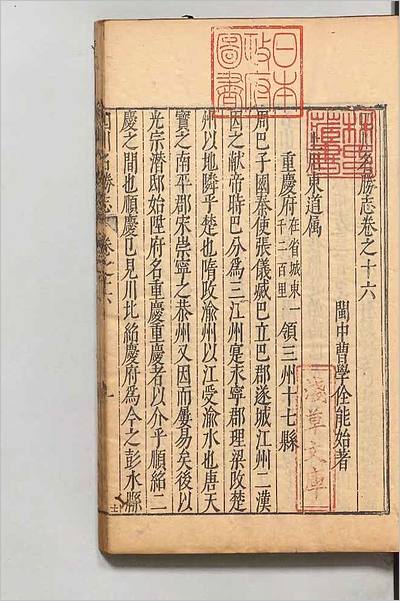 日本政府圖書
林氏藏書
名勝志卷之十六
閩中曹學佺能始著
淺草文庫
川東道属
重慶府在省城東一千二百里領三州十七縣
周巴子國秦使張儀滅巴立巴郡遂城江州二漢
因之献帝時巴分爲三江州寔永寧郡理梁改楚
州以地隣乎楚也隋改渝州以江受渝水也唐天
寶之南平郡宋崇寧之恭州又因而屢易矣後以
光宗潜邸始陞府名重慶重慶者以介乎順紹二
慶之間也順慶已見川北紹慶府爲今之彭水縣
四川名勝志 卷之十六 一